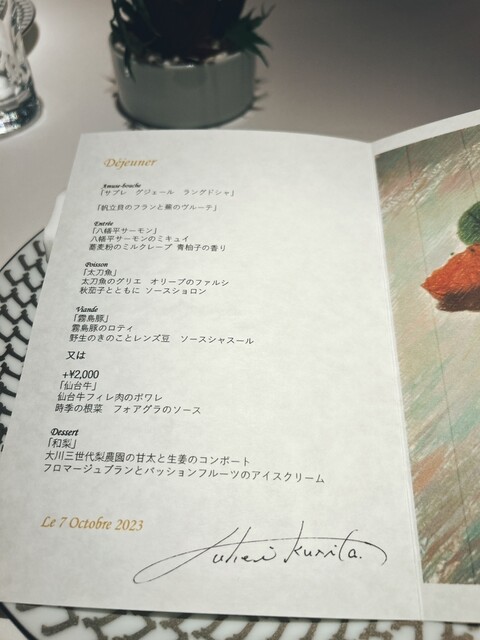 Déjeuner
Amuse-bouche
「サブレ グジェール ラングドシャ」
「帆立貝のフランと蕪のヴルーテ」
Entrée
「八幡平サーモン」
八幡平サーモンのミキュイ
蕎麦粉のミルクレープ 青柚子の香り
Poisson
「太刀魚」
太刀魚のグリエ オリーブのファルシ
秋茄子とともに ソースショロン
Viande
「雲島豚」
雲島豚のロティ
野生のきのことレンズ豆 ソースシャスール
又は
+¥2,000
「仙台牛」
仙台牛フィレ肉のポワレ
時季の根菜 フォアグラのソース
Dessert
「和梨」
大川三世代梨農園の甘太と生姜のコンポート
フロマージュブランとパッションフルーツのアイスクリーム
Le 7 Octobre 2023
Kurita.